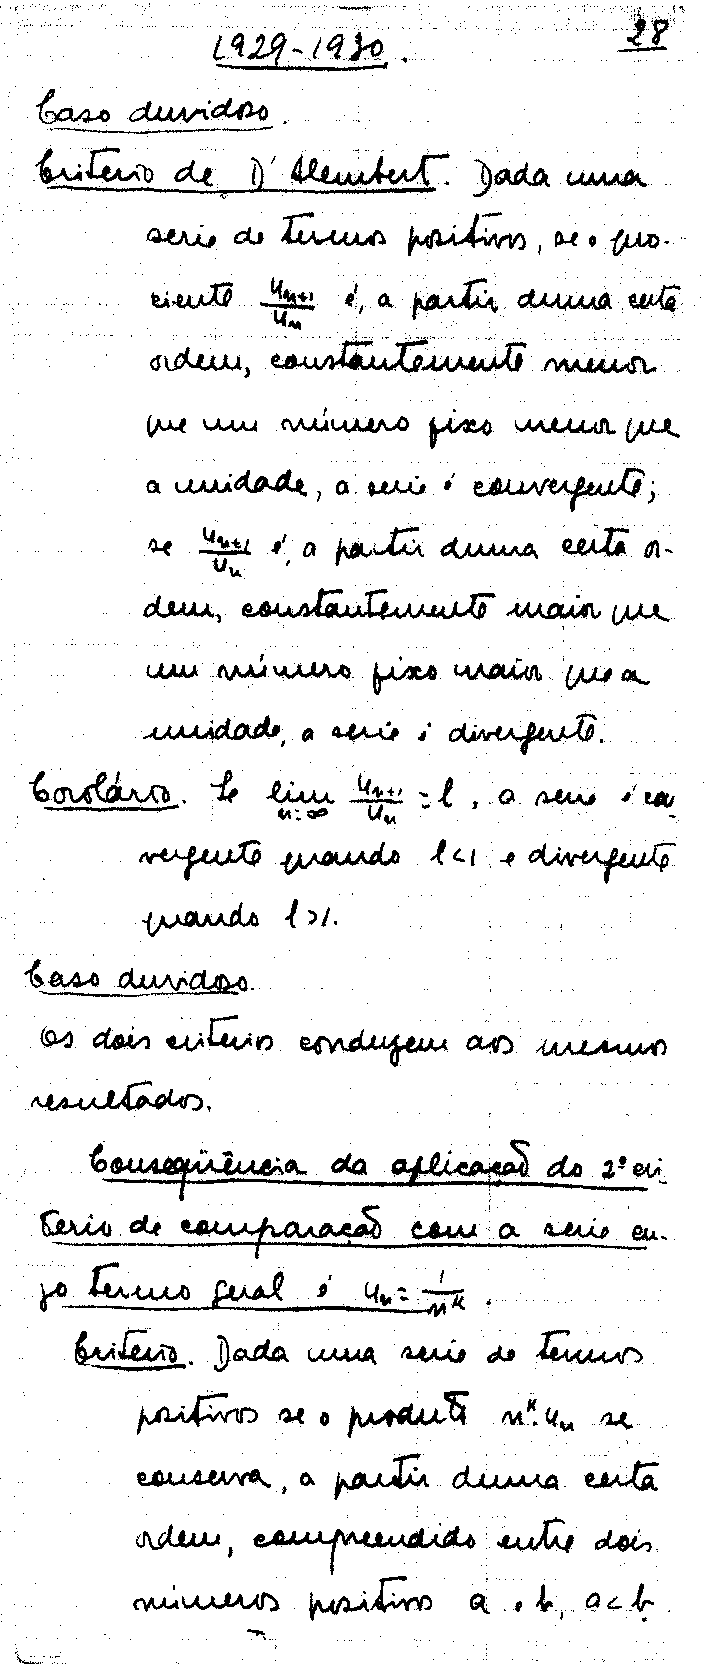 28
1929-1930.
Caso duvidoso.
Criterio de D'Alembert. Dada uma
serie de termos positivos, se o quo-
ciente \frac{u_{n+1}}{u_n} é, a partir duma certa
ordem, constantemente menor
que um número fixo menor que
a unidade, a serie é convergente;
se \frac{u_{n+1}}{u_n} é, a partir duma certa or-
dem, constantemente maior que
um número fixo maior que a
unidade, a serie é divergente.
Corolário. Se lim_{n=∞} \frac{u_{n+1}}{u_n} = l, a serie é con-
vergente quando l<1 e divergente
quando l>1.
Caso duvidoso.
Os dois criterios conduzem aos mesmos
resultados.
Conseqüência da aplicação do 2º cri-
terio de comparação com a serie cu-
jo termo geral é u_n = \frac{1}{n^k}.
Criterio. Dada uma serie de termos
positivos se o produto n^k.u_n se
conserva, a partir duma certa
ordem, compreendido entre dois
números positivos a e b, a<b